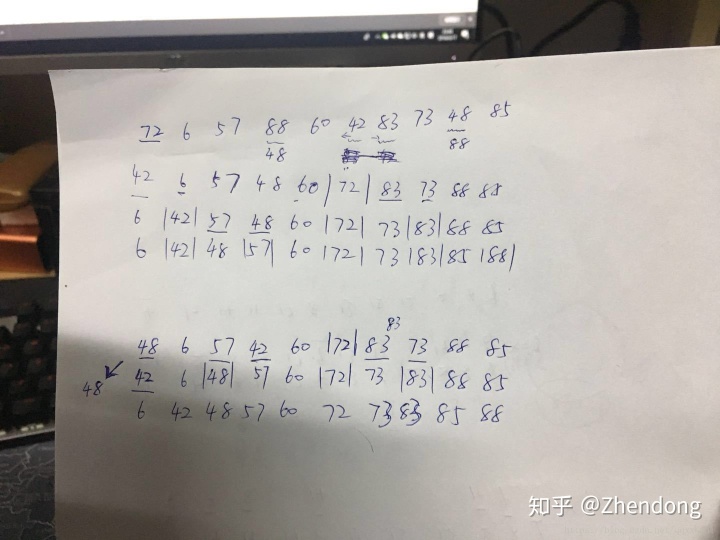 72 6 57 88 60 42 83 73 48 85
48 88
42 6 57 48 60 |72| 83 73 88 85
6 |42| 57 48 60 |72| 73 |83| 88 85
6 |42| 48 |57| 60 |72| 73 |83| 85 |88|
83
48 6 57 42 60 |72| 83 73 88 85
48 42 6 |48| 57 60 |72| 73 |83| 88 85
6 42 48 57 60 72 73 83 85 88
知乎 @Zhendong